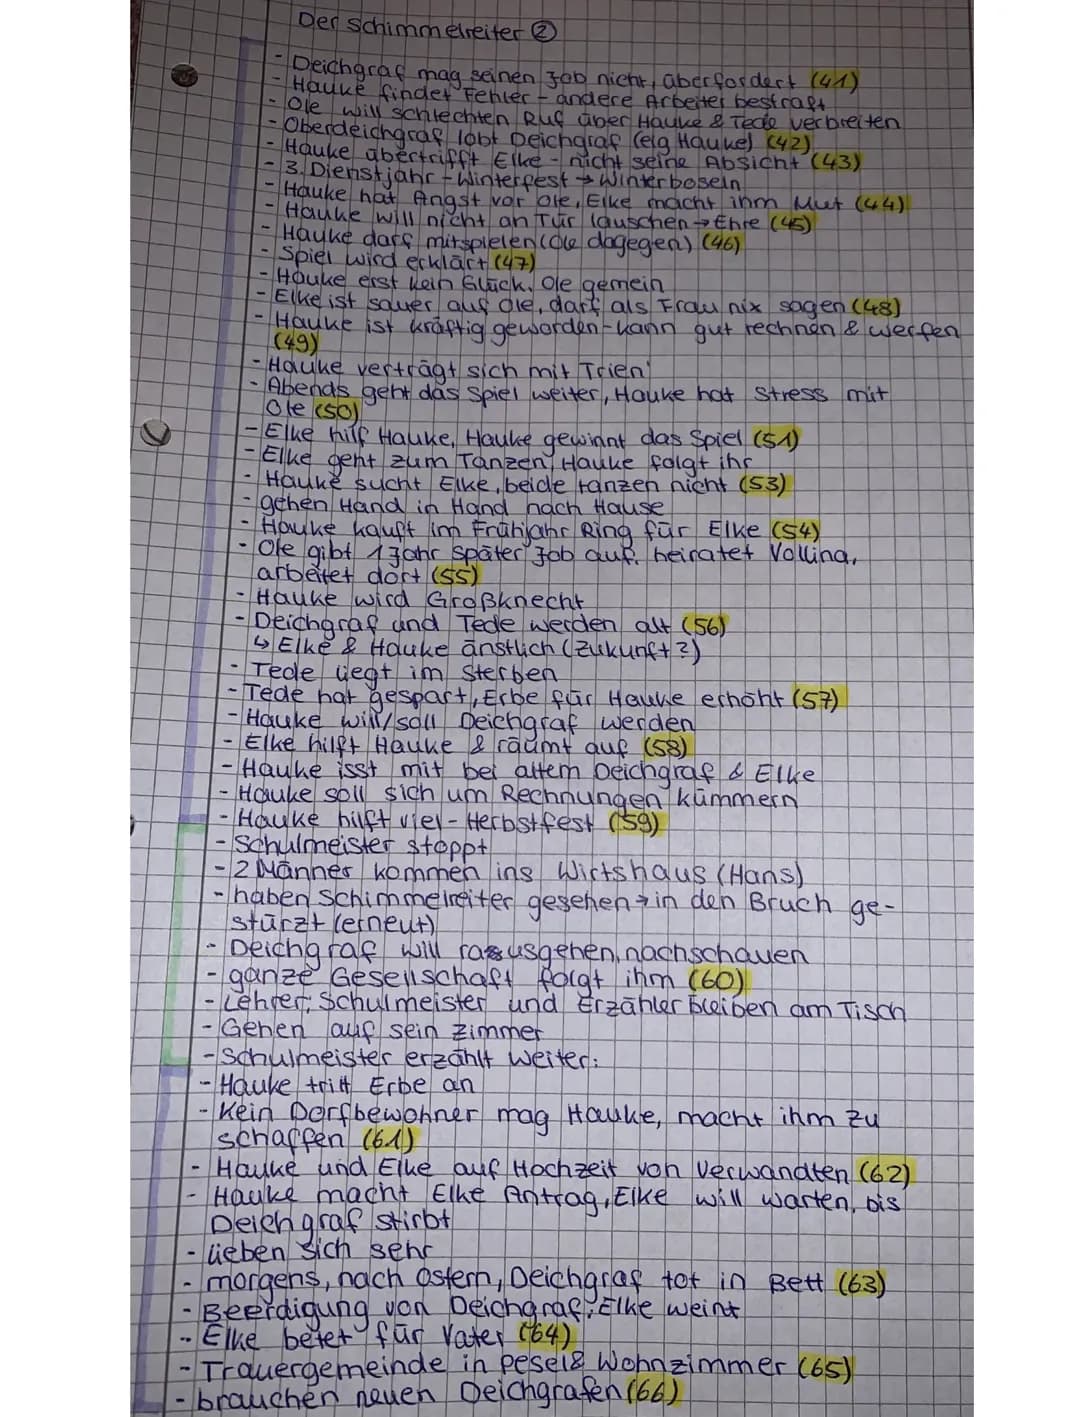 Der Schimmelreiter ②
- Deichgraf mag seinen Job nicht, überfordert (41)
- Hauke findet Fehler - andere Arbeiter bestraft
- Ole will schlechten Ruf über Hauke & Tede verbreiten
- Oberdeichgraf lobt Deichgraf (eig Hauke) (42)
- Hauke übertrifft Elke - nicht seine Absicht (43)
- 3. Dienstjahr - Winterfest → Winterboseln
- Hauke hat Angst vor Ole, Elke macht ihm Mut (44)
- Hauke will nicht an Tür lauschen → Ehre (45)
- Hauke darf mitspielen (Ole dagegen) (46)
- Spiel wird erklärt (47)
- Hauke erst kein Glück, Ole gemein
- Elke ist sauer auf Ole, darf als Frau nix sagen (48)
- Hauke ist kräftig geworden - kann gut rechnen & werfen
(49)
- Hauke verträgt sich mit Trien'
- Abends geht das Spiel weiter, Hauke hat Stress mit
Ole (50)
- Elke hilf Hauke, Hauke gewinnt das Spiel (51)
- Elke geht zum Tanzen, Hauke folgt ihr
- Hauke sucht Elke, beide tanzen nicht (53)
- gehen Hand in Hand nach Hause
- Hauke kauft im Frühjahr Ring für Elke (54)
- Ole gibt 1 Jahr später Job auf, heiratet Vollina,
arbeitet dort (55)
- Hauke wird Großknecht
- Deichgraf und Tede werden alt (56)
↳ Elke & Hauke änstlich (Zukunft?)
- Tede liegt im Sterben
- Tede hat gespart, Erbe für Hauke erhöht (57)
- Hauke will/soll Deichgraf werden
- Elke hilft Hauke & räumt auf (58)
- Hauke isst mit bei altem Deichgraf & Elke
- Hauke soll sich um Rechnungen kümmern
- Hauke hilft viel - Herbstfest (59)
- Schulmeister stoppt
- 2 Männer kommen ins Wirtshaus (Hans)
- haben Schimmelreiter gesehen → in den Bruch ge-
stürzt (erneut)
- Deichgraf will rausgehen, nachschauen
- ganze Gesellschaft folgt ihm (60)
- Lehrer, Schulmeister und Erzähler bleiben am Tisch
- Gehen auf sein Zimmer
- Schulmeister erzählt weiter:
- Hauke tritt Erbe an
- Kein Dorfbewohner mag Hauke, macht ihm zu
schaffen (61)
- Hauke und Elke auf Hochzeit von Verwandten (62)
- Hauke macht Elke Antrag, Elke will warten, bis
Deichgraf stirbt
- lieben sich sehr
- morgens, nach Ostern, Deichgraf tot in Bett (63)
- Beerdigung von Deichgraf, Elke weint
- Elke betet für Vater (64)
- Trauergemeinde in Pesel & Wohnzimmer (65)
- brauchen neuen Deichgrafen (66)